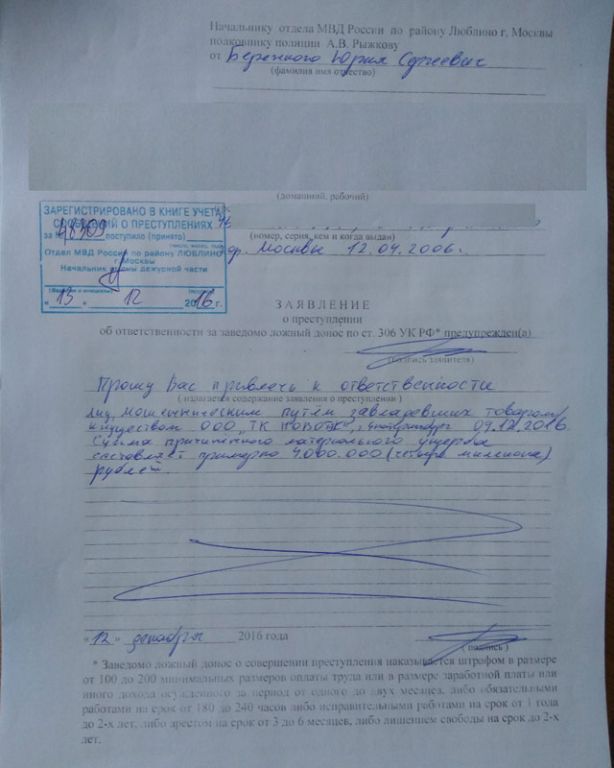 Начальнику отдела МВД России по району Люблино г. Москвы
полковнику полиции А.В. Рыжкову
от Бережного Юрия Сергеевич
(фамилия имя отчество)
(домашний, рабочий)
ЗАРЕГИСТРИРОВАНО В КНИГЕ УЧЕТА
СООБЩЕНИЙ О ПРЕСТУПЛЕНИЯХ
за № 48309 поступило (принято)
Отдел МВД России по району ЛЮБЛИНО
г. Москвы
Начальник смены дежурной части
« 13 » 12 2016 г.
(номер, серия, кем и когда выдан)
гор. Москвы 12.04.2006г.
ЗАЯВЛЕНИЕ
о преступлении
об ответственности за заведомо ложный донос по ст. 306 УК РФ* предупрежден(а)
(подпись заявителя)
Прошу Вас привлечь к ответственности
( излагается содержание заявления о преступлении )
лиц, мошенническим путём завладевших товаром/
имуществом ООО „ТК 09.12.2016.
Сумма причинённого материального ущерба
составляет примерно 4.000.000 (четыре миллиона)
рублей.
«12» декабря 2016 года
( подпись )
* Заведомо ложный донос о совершении преступления наказывается штрафом в размере
от 100 до 200 минимальных размеров оплаты труда или в размере заработной платы или
иного дохода осужденного за период от одного до двух месяцев, либо обязательными
работами на срок от 180 до 240 часов либо исправительными работами на срок от 1 года
до 2-х лет, либо арестом на срок от 3 до 6 месяцев, либо лишением свободы на срок до 2-х
лет.